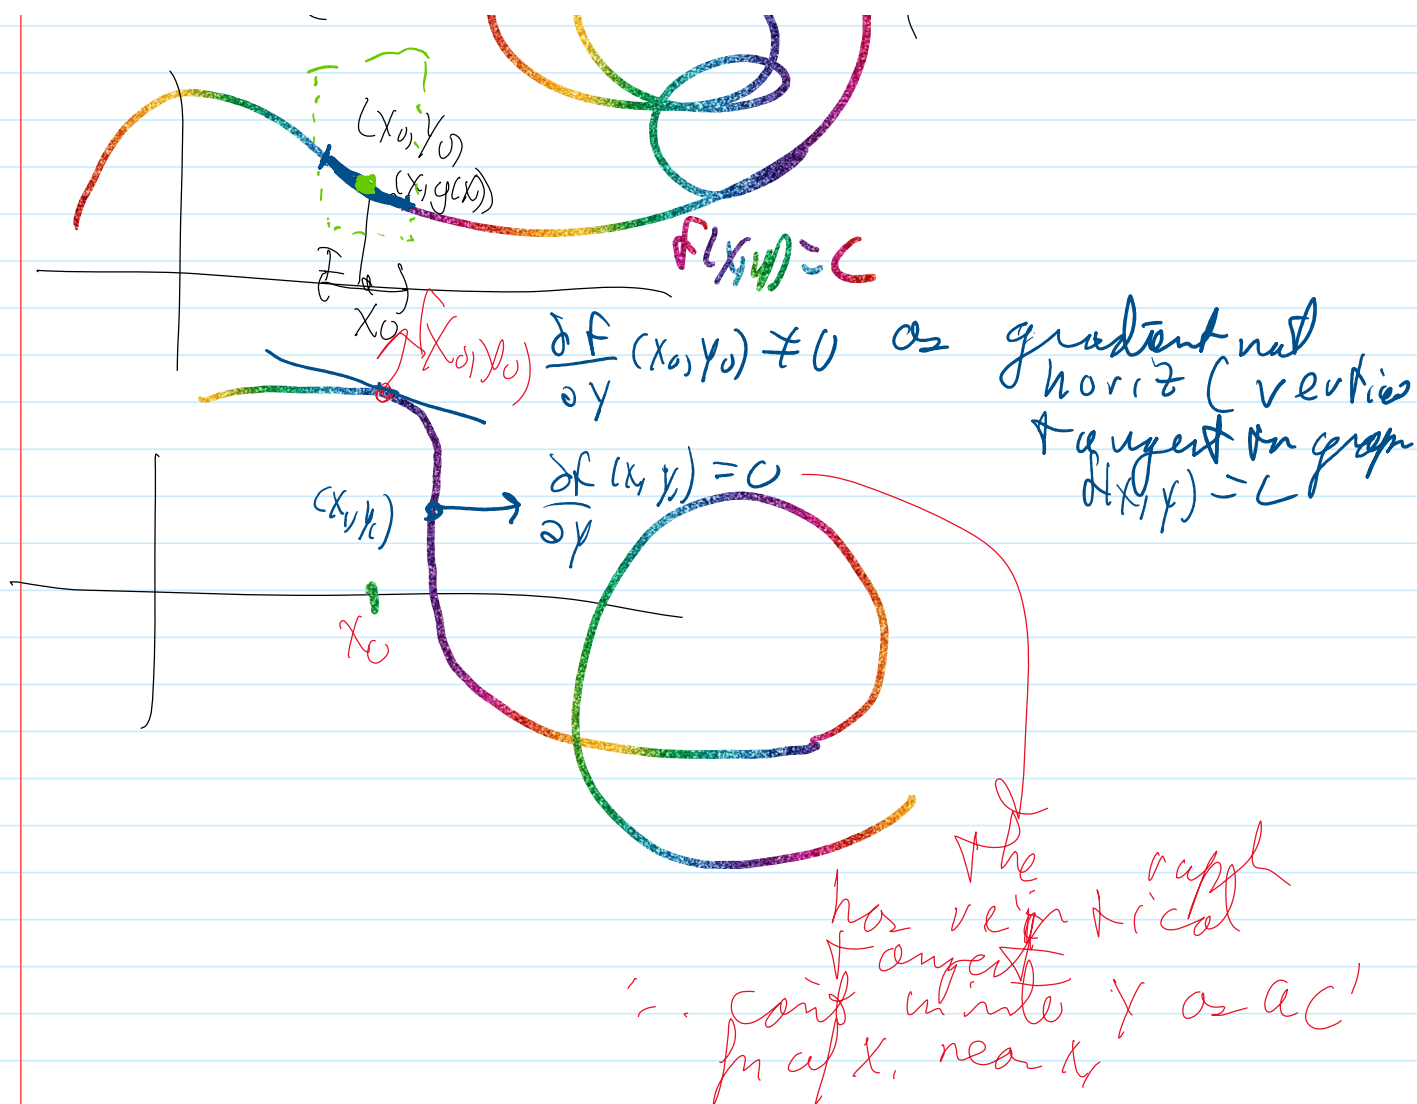 (x₀, y₀)
(x, g(x))
f(x, y) = C
I
x₀
(x₀, y₀)
∂f/∂y (x₀, y₀) ≠ 0 as gradient not
horiz (vertic
tangent to graph
f(x, y) = C
(x₁, y₁)
∂f/∂y (x₁, y₁) = 0
x₀
the raph
has vertical
tangent
∴ can't write y as a C¹
fn of x, near x₁